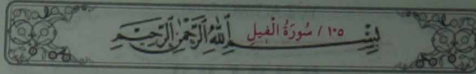 ١٠٥ / سُورَةُ الْفِيلِ
بِسْمِ اللَّهِ الرَّحْمَٰنِ الرَّحِيمِ